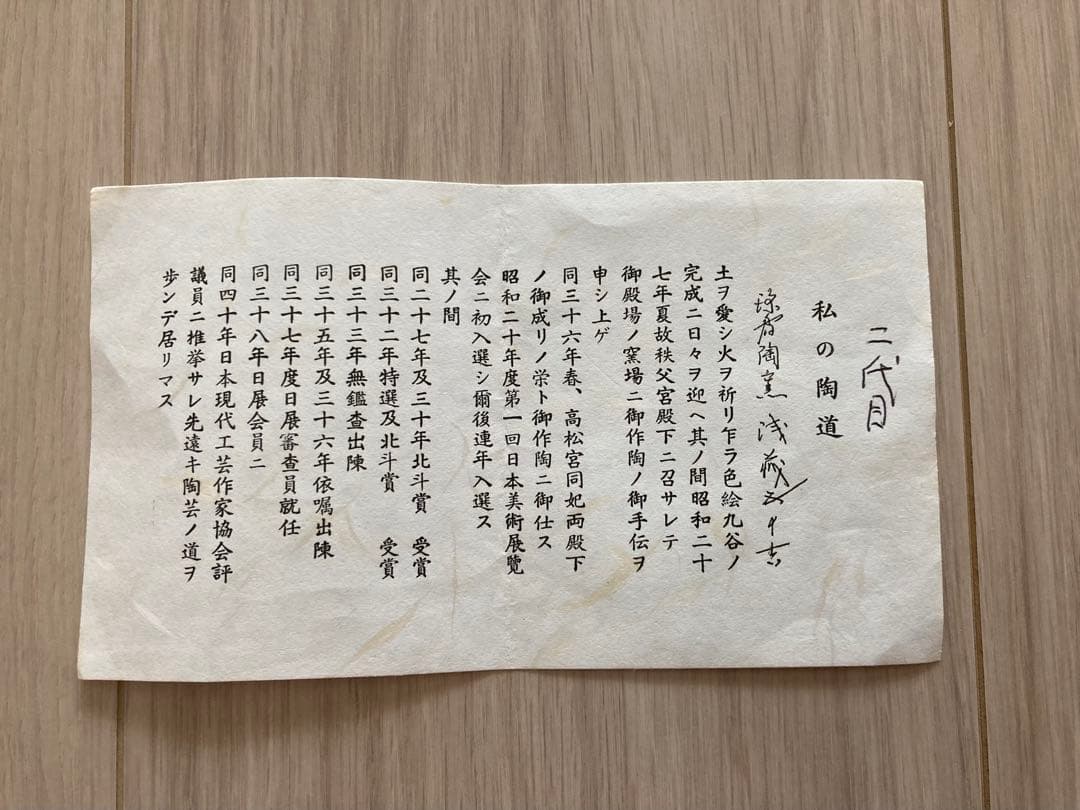 二代目
私の陶道
陶窯 浅蔵五十吉
土ヲ愛シ火ヲ祈リ乍ラ色絵九谷ノ
完成ニ日々ヲ迎ヘ其ノ間昭和二十
七年夏故秩父宮殿下ニ召サレテ
御殿場ノ窯場ニ御作陶ノ御手伝ヲ
申シ上ゲ
同三十六年春、高松宮同妃両殿下
ノ御成リノ栄ト御作陶ニ御仕ス
昭和二十年度第一回日本美術展覧
会ニ初入選シ爾後連年入選ス
其ノ間
同二十七年及三十年北斗賞 受賞
同三十二年特選及北斗賞 受賞
同三十三年無鑑査出陳
同三十五年及三十六年依嘱出陳
同三十七年度日展審査員就任
同三十八年日展会員ニ
同四十年日本現代工芸作家協会評
議員ニ推挙サレ先遠キ陶芸ノ道ヲ
歩ンデ居リマス